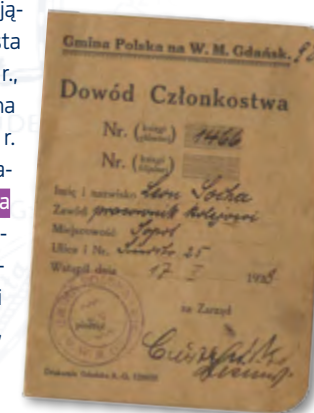 ją-
sta
r.,
na
r.
a-
a
-
-
i
,
Gmina Polska na W. M. Gdańsk.
Dowód Członkostwa
Nr. (księgi głównej) 1466
Nr. (księgi filjalnej)
Imię i nazwisko Leon Socha
Zawód pracownik kolejowi
Miejscowość Sopot
Ulica i Nr. 25
Wstąpił dnia 17 I 1933
za Zarząd